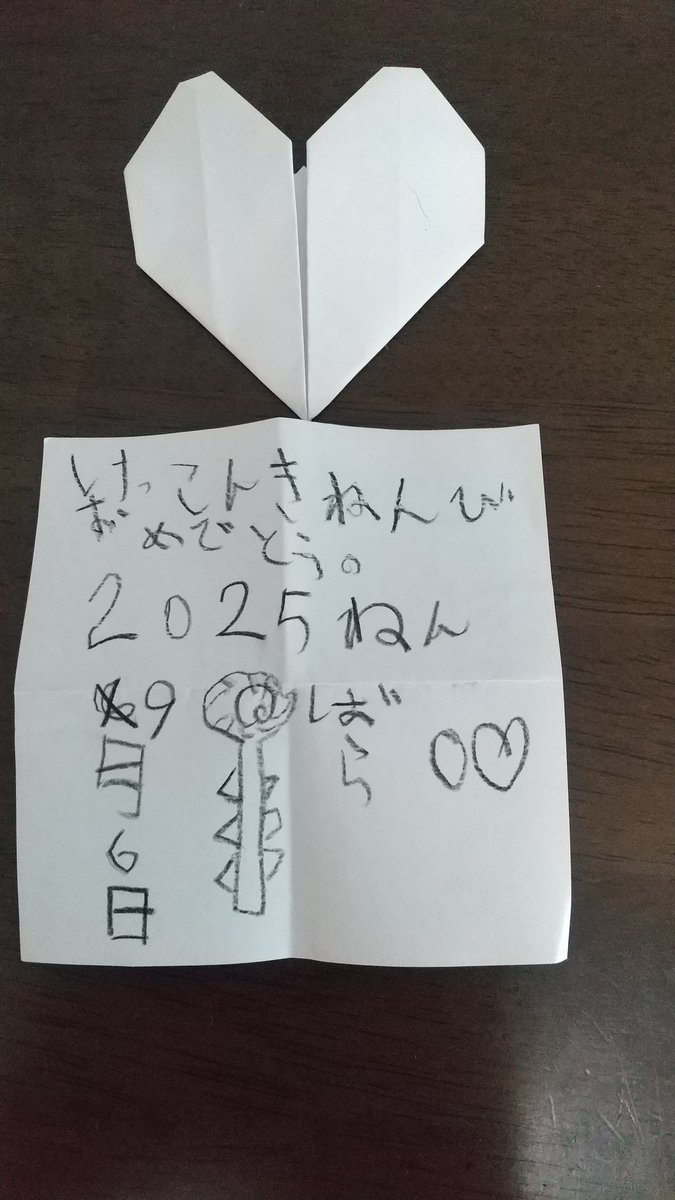 けっこんきねんび
おめでとう。
2025ねん
9
月
6
日
ばら